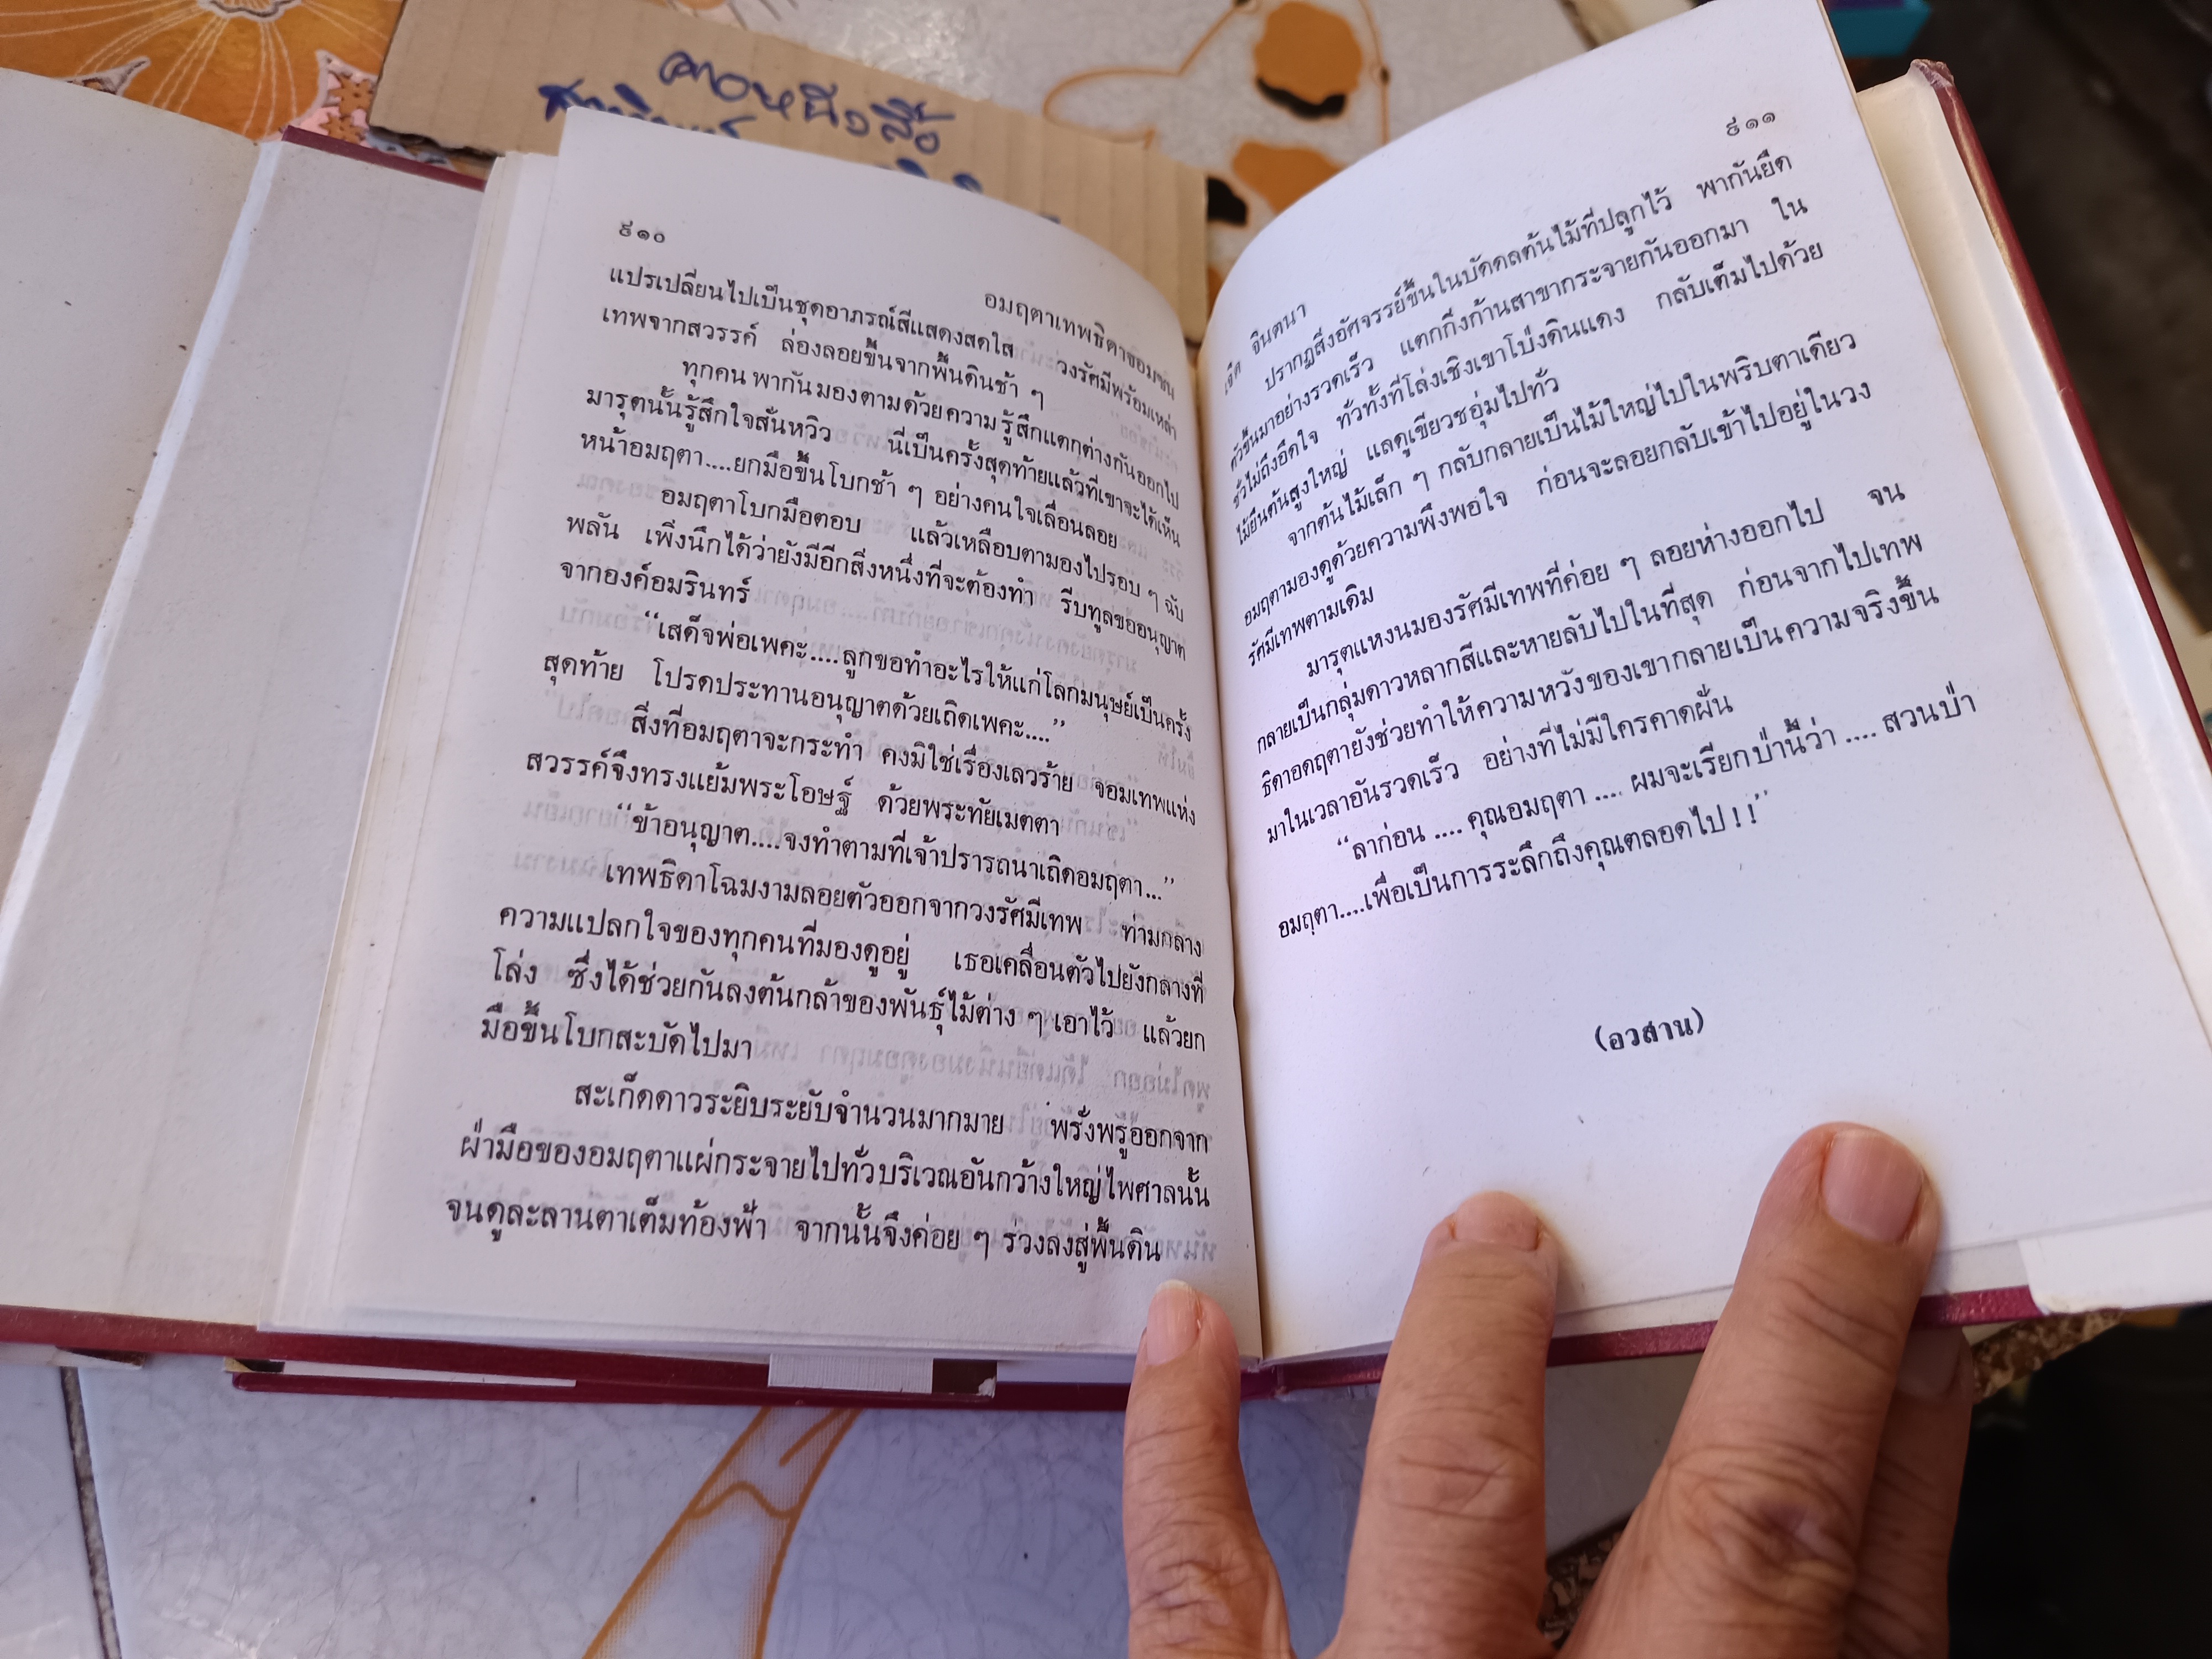 คาอหนึ่งสื้อ
๙๑๐
อมฤตาเทพธิดาจอมซน
แปรเปลี่ยนไปเป็นชุดอาภรณ์สีแสดงสดใส วงรัศมีพร้อมเหล่า
เทพจากสวรรค์ ล่องลอยขึ้นจากพื้นดินช้า ๆ
ทุกคนพากันมองตามด้วยความรู้สึกแตกต่างกันออกไป
มารุตนั้นรู้สึกใจสั่นหวิว นี่เป็นครั้งสุดท้ายแล้วที่เขาจะได้เห็น
หน้าอมฤตา....ยกมือขึ้นโบกช้า ๆ อย่างคนใจเลื่อนลอย
อมฤตาโบกมือตอบ แล้วเหลือบตามองไปรอบ ๆ ฉับ
พลัน เพิ่งนึกได้ว่ายังมีอีกสิ่งหนึ่งที่จะต้องทำ รีบทูลขออนุญาต
จากองค์อมรินทร์
“เสด็จพ่อเพคะ....ลูกขอทำอะไรให้แก่โลกมนุษย์เป็นครั้ง
สุดท้าย โปรดประทานอนุญาตด้วยเถิดเพคะ....”
สิ่งที่อมฤตาจะกระทำ คงมิใช่เรื่องเลวร้าย จอมเทพแห่ง
สวรรค์จึงทรงแย้มพระโอษฐ์ ด้วยพระทัยเมตตา
“ข้าอนุญาต....จงทำตามที่เจ้าปรารถนาเถิดอมฤตา...”
เทพธิดาโฉมงามลอยตัวออกจากวงรัศมีเทพ ท่ามกลาง
ความแปลกใจของทุกคนที่มองดูอยู่ เธอเคลื่อนตัวไปยังกลางที่
โล่ง ซึ่งได้ช่วยกันลงต้นกล้าของพันธุ์ไม้ต่าง ๆ เอาไว้ แล้วยก
มือขึ้นโบกสะบัดไปมา
สะเก็ดดาวระยิบระยับจำนวนมากมาย พรั่งพรูออกจาก
ฝ่ามือของอมฤตาแผ่กระจายไปทั่วบริเวณอันกว้างใหญ่ไพศาลนั้น
จนดูละลานตาเต็มท้องฟ้า จากนั้นจึงค่อย ๆ ร่วงลงสู่พื้นดิน
๙๑๑
จินตนา
ปรากฏสิ่งอัศจรรย์ขึ้นในบัดดลต้นไม้ที่ปลูกไว้ พากันยืด
ตัวขึ้นมาอย่างรวดเร็ว แตกกิ่งก้านสาขากระจายกันออกมา ใน
ชั่วไม่ถึงอึดใจ ทั่วทั้งที่โล่งเชิงเขาโป่งดินแดง กลับเต็มไปด้วย
ไม้ยืนต้นสูงใหญ่ แลดูเขียวชอุ่มไปทั่ว
จากต้นไม้เล็ก ๆ กลับกลายเป็นไม้ใหญ่ไปในพริบตาเดียว
อมฤตามองดูด้วยความพึงพอใจ ก่อนจะลอยกลับเข้าไปอยู่ในวง
รัศมีเทพตามเดิม
มารุตแหงนมองรัศมีเทพที่ค่อย ๆ ลอยห่างออกไป จน
กลายเป็นกลุ่มดาวหลากสีและหายลับไปในที่สุด ก่อนจากไปเทพ
ธิดาอดฤตายังช่วยทำให้ความหวังของเขากลายเป็นความจริงขึ้น
มาในเวลาอันรวดเร็ว อย่างที่ไม่มีใครคาดฝัน
“ลาก่อน .... คุณอมฤตา .... ผมจะเรียกป่านี้ว่า .... สวนป่า
อมฤตา....เพื่อเป็นการระลึกถึงคุณตลอดไป ! !”
(อวสาน)